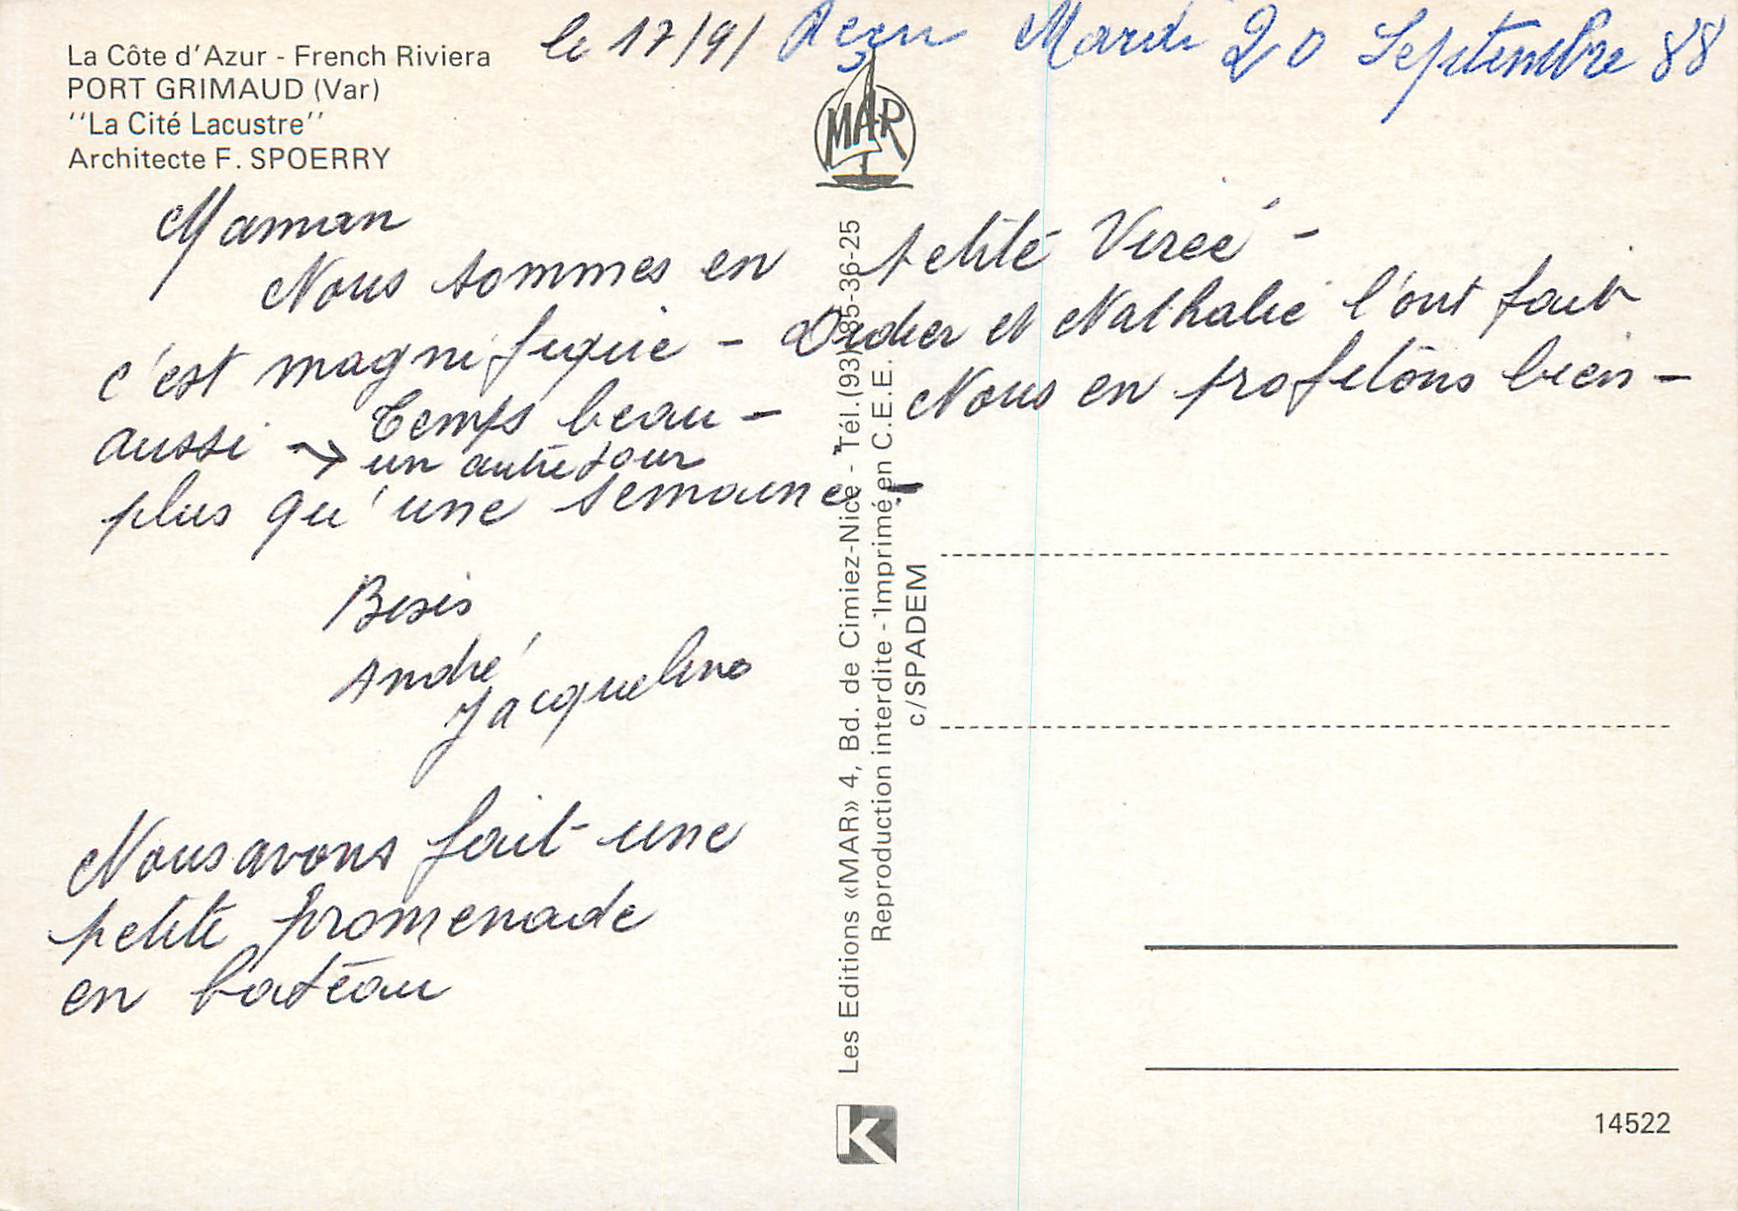 La Côte d'Azur - French Riviera
PORT GRIMAUD (Var)
''La Cité Lacustre''
Architecte F. SPOERRY
le 17/9/ Reçu Mardi 20 Septembre 88
MAR
Maman
Nous sommes en petite Virée -
c'est magnifique - Didier et Nathalie l'ont fait
aussi → Temps beau - Nous en profitons bien -
un autre jour
plus qu'une semaine -
Bises
André
Jacqueline
Nous avons fait une
petite promenade
en bateau
Les Editions «MAR» 4, Bd. de Cimiez-Nice - Tél.(93) 85-36-25
Reproduction interdite - Imprimé en C.E.E.
c/SPADEM
K
14522